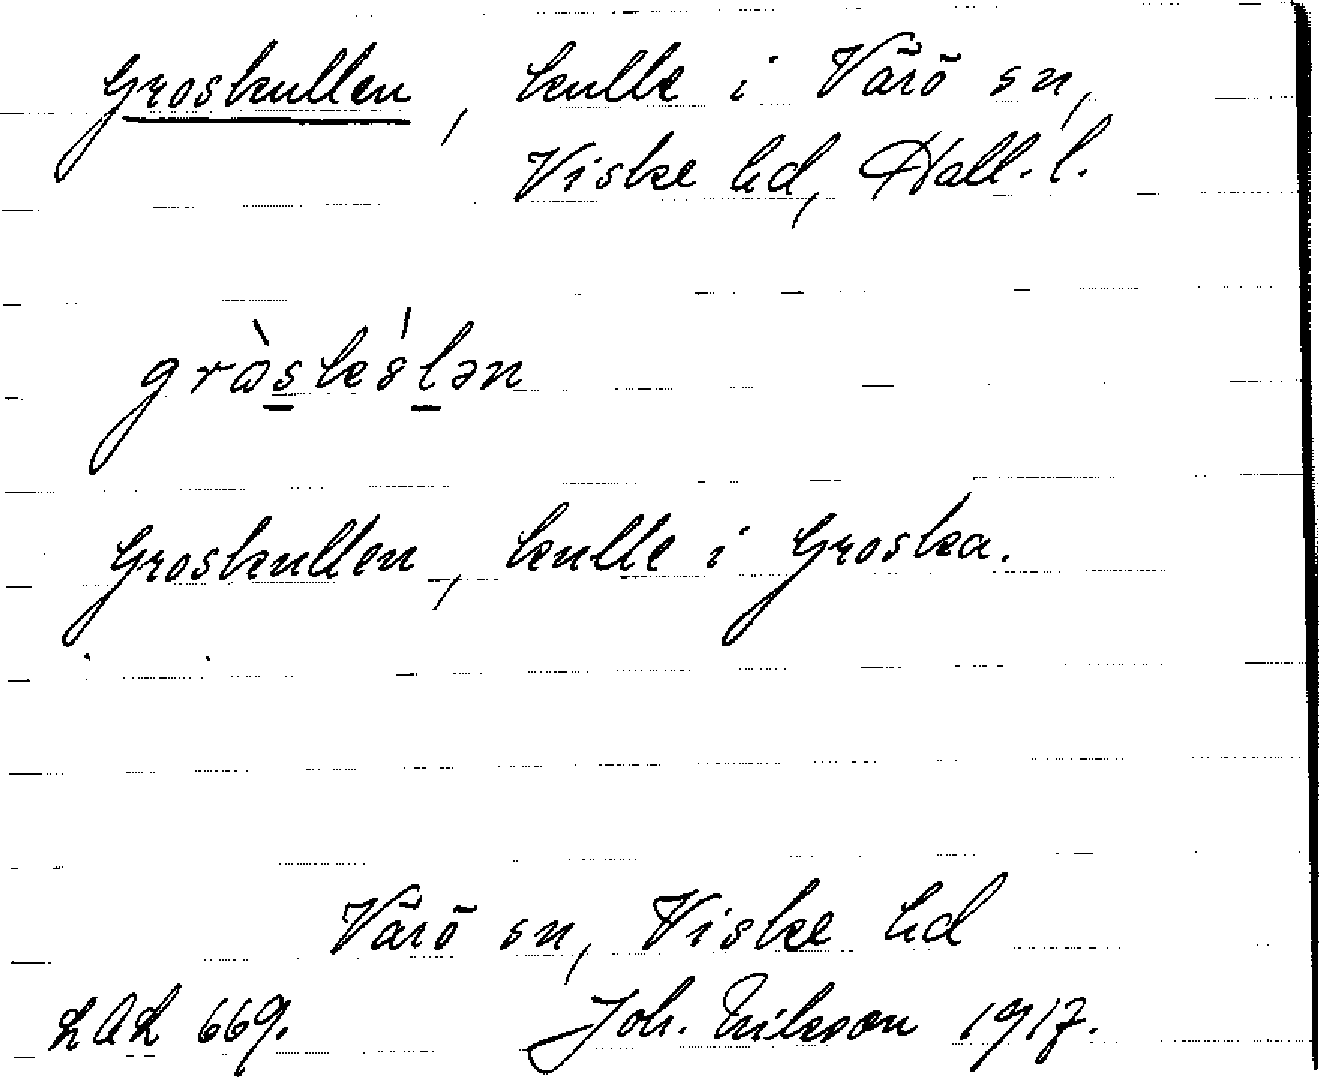 Groskullen, kulle i Värö sn,
Viske hd, Hall. l.
Groskullen, kulle i Groska.
Värö sn, Viske hd
LAL 669. Joh. Erikson 1917.